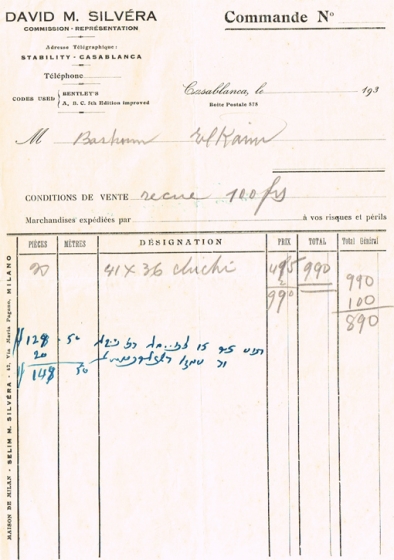 DAVID M. SILVÉRA
COMMISSION - REPRÉSENTATION
Adresse Télégraphique :
STABILITY - CASABLANCA
Téléphone
CODES USED
BENTLEY'S
A, B. C. 5th Edition improved
Commande Nº
Casablanca, le 193
Boîte Postale 575
M El Kaim
CONDITIONS DE VENTE recue 100 frs
Marchandises expédiées par à vos risques et périls
PIÈCES MÈTRES DÉSIGNATION PRIX TOTAL Total Général
20 41 X 36 chichi 495 990
2
990
990
100
890
128 . 50
20
148 50
MAISON DE MILAN - SELIM M. SILVÉRA - Via Mario Pagano, MILANO